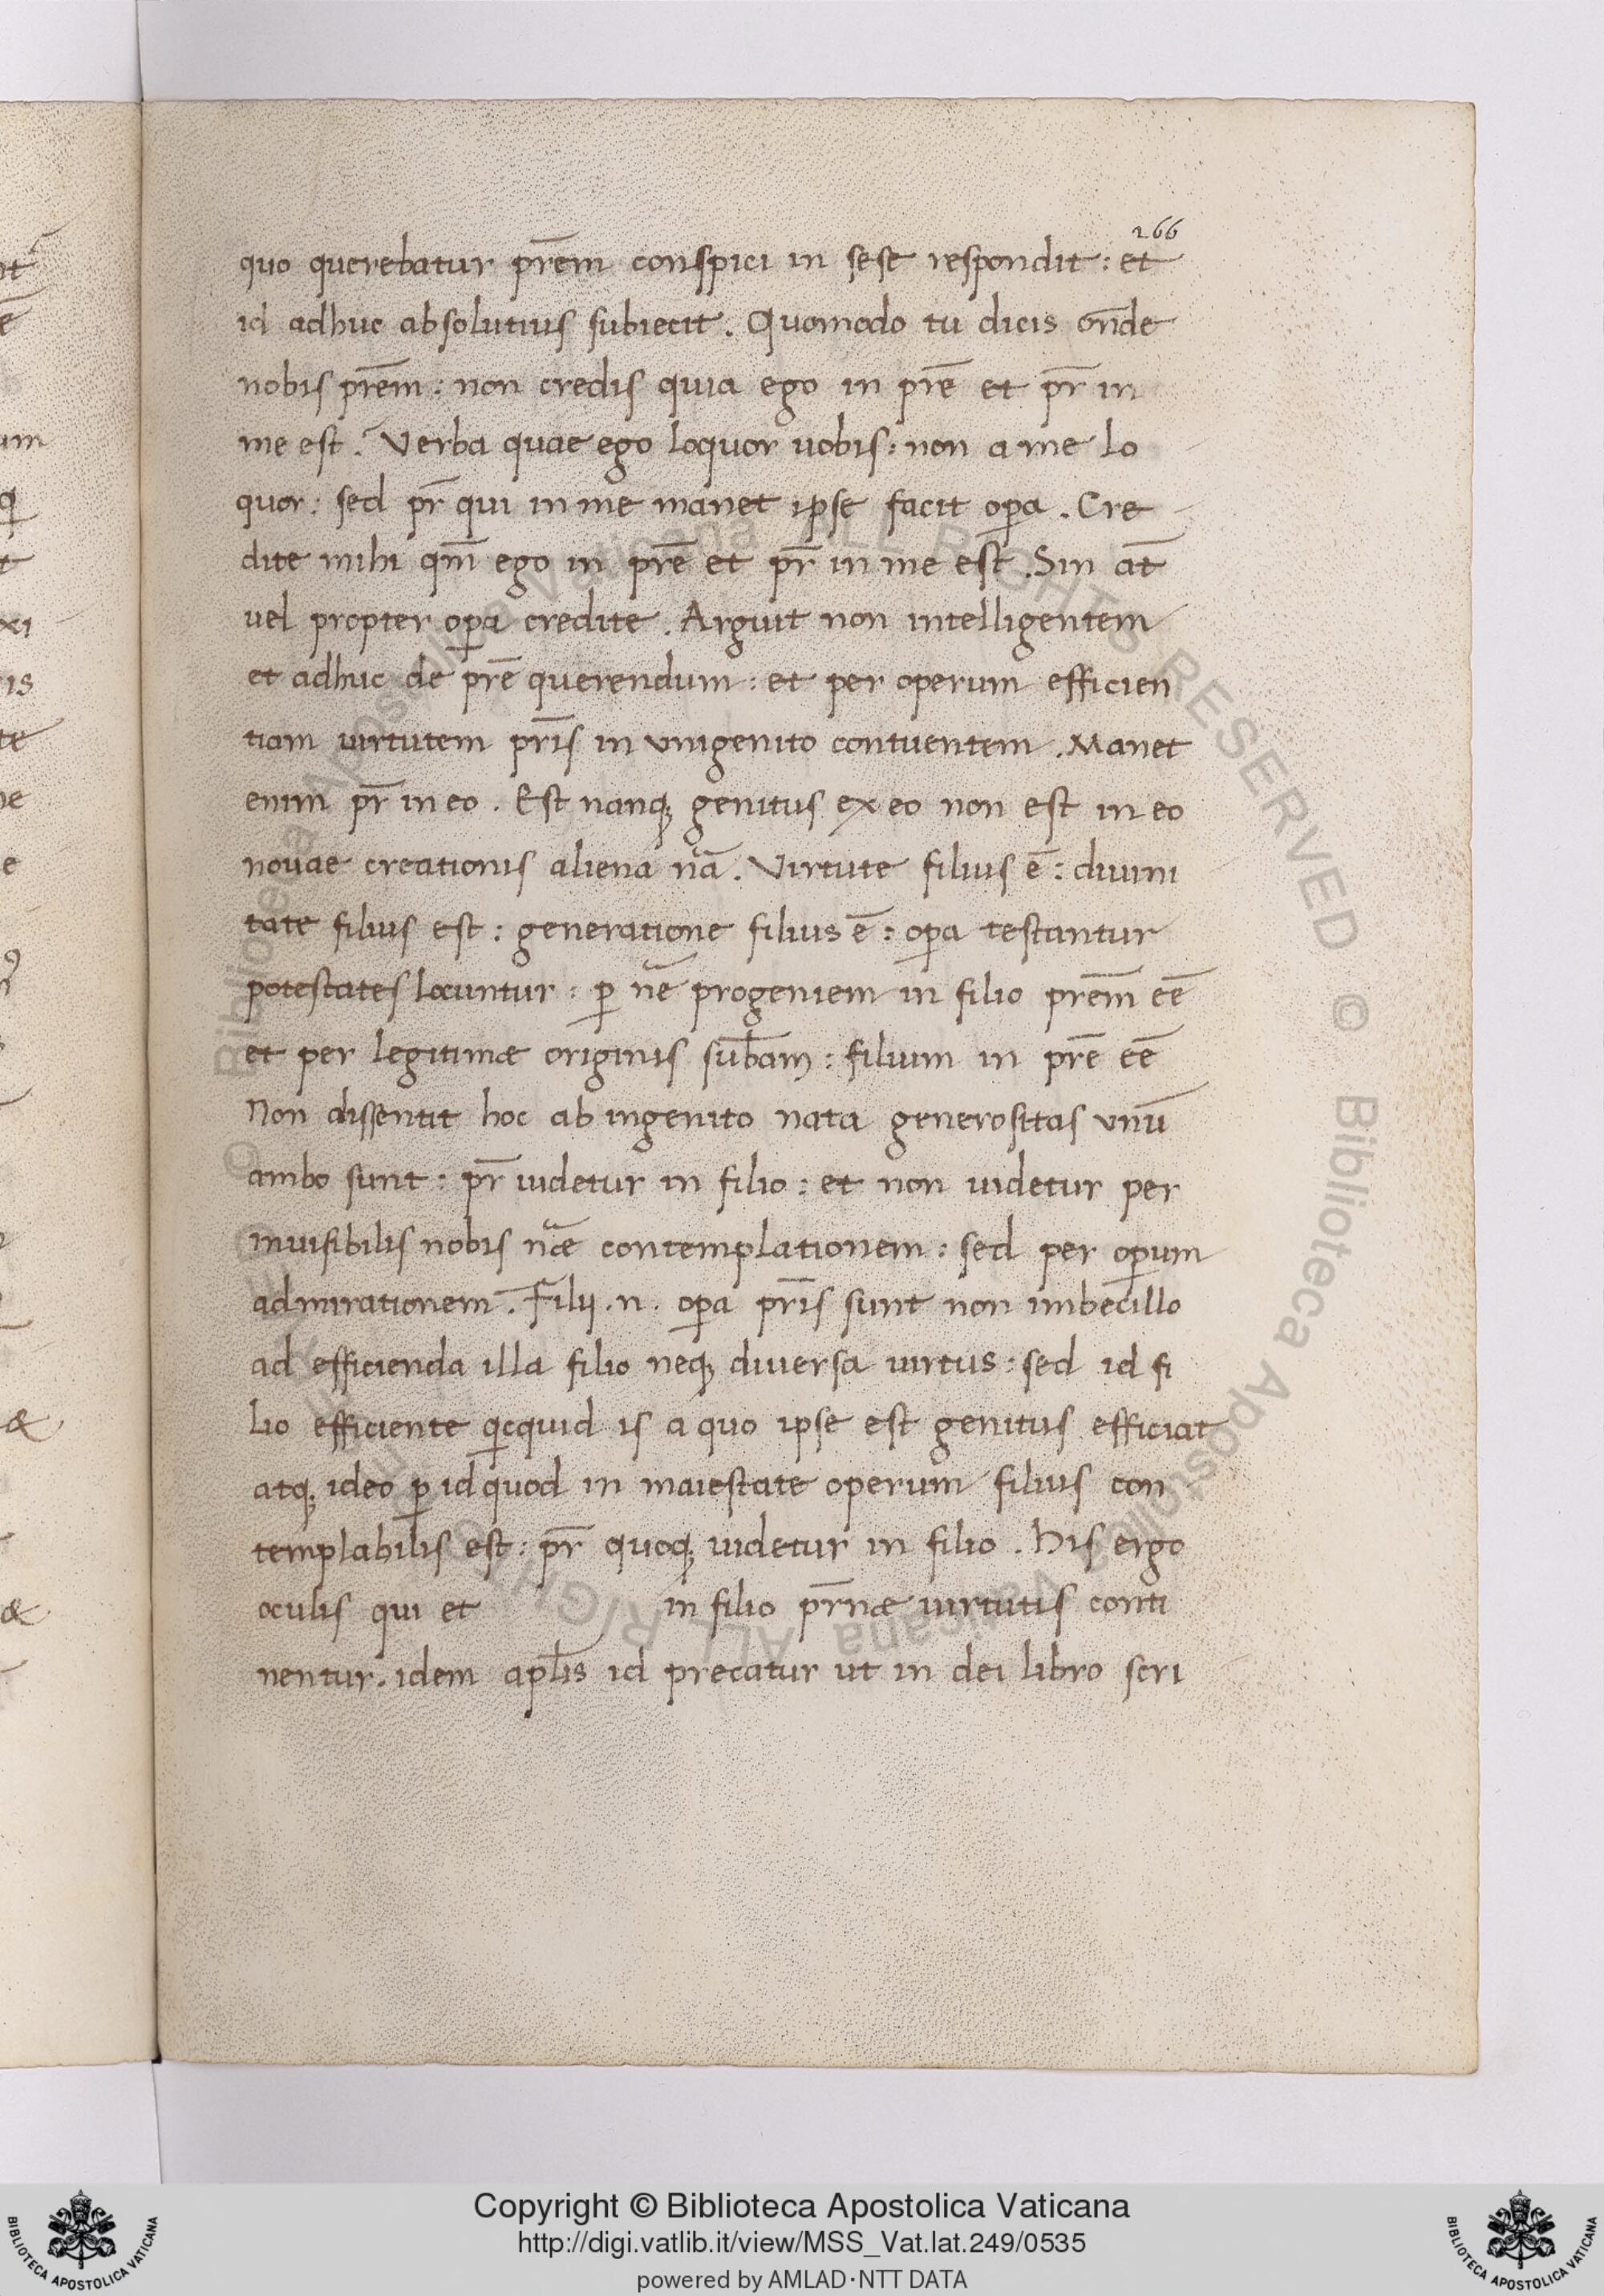 266
quo querebatur pr̄em conspici in sese respondit: et
id adhuc absolutius subiecit. Quomodo tu dicis on̄de
nobis pr̄em: non credis quia ego in pr̄e et pr̄ in
me est. Verba quae ego loquor uobis: non a me lo
quor: sed pr̄ qui in me manet ipse facit op̲a. Cre
dite mihi qm̄ ego in pr̄e et pr̄ in me est. Sin at̄
uel propter op̲a credite. Arguit non intelligentem
et adhuc de pr̄e querendum: et per operum efficien
tiam uirtutem pr̄is in vnigenito contuentem. Manet
enim pr̄ in eo. Est nanq; genitus ex eo non est in eo
nouae creationis aliena nā. Virtute filius ē: diuini
tate filius est: generatione filius ē: op̲a testantur
potestates locuntur: p̲ nē progeniem in filio pr̄em eē
et per legitimæ originis sub̄am: filium in pr̄e eē
Non dissentit hoc ab ingenito nata generositas vnū
ambo sunt: pr̄ uidetur in filio: et non uidetur per
inuisibilis nobis nǣ contemplationem: sed per op̲um
admirationem. Filij .n. op̲a pr̄is sunt non imbecillo
ad efficienda illa filio neq; diuersa uirtus: sed id fi
lio efficiente qicquid is a quo ipse est genitus efficiat
atq; ideo p̲ id quod in maiestate operum filius con
templabilis est: pr̄ quoq; uidetur in filio. His ergo
oculis qui et in filio pr̄næ uirtutis conti
nentur. idem apl̄is id precatur ut in dei libro scri
Copyright © Biblioteca Apostolica Vaticana
http://digi.vatlib.it/view/MSS_Vat.lat.249/0535
powered by AMLAD·NTT DATA